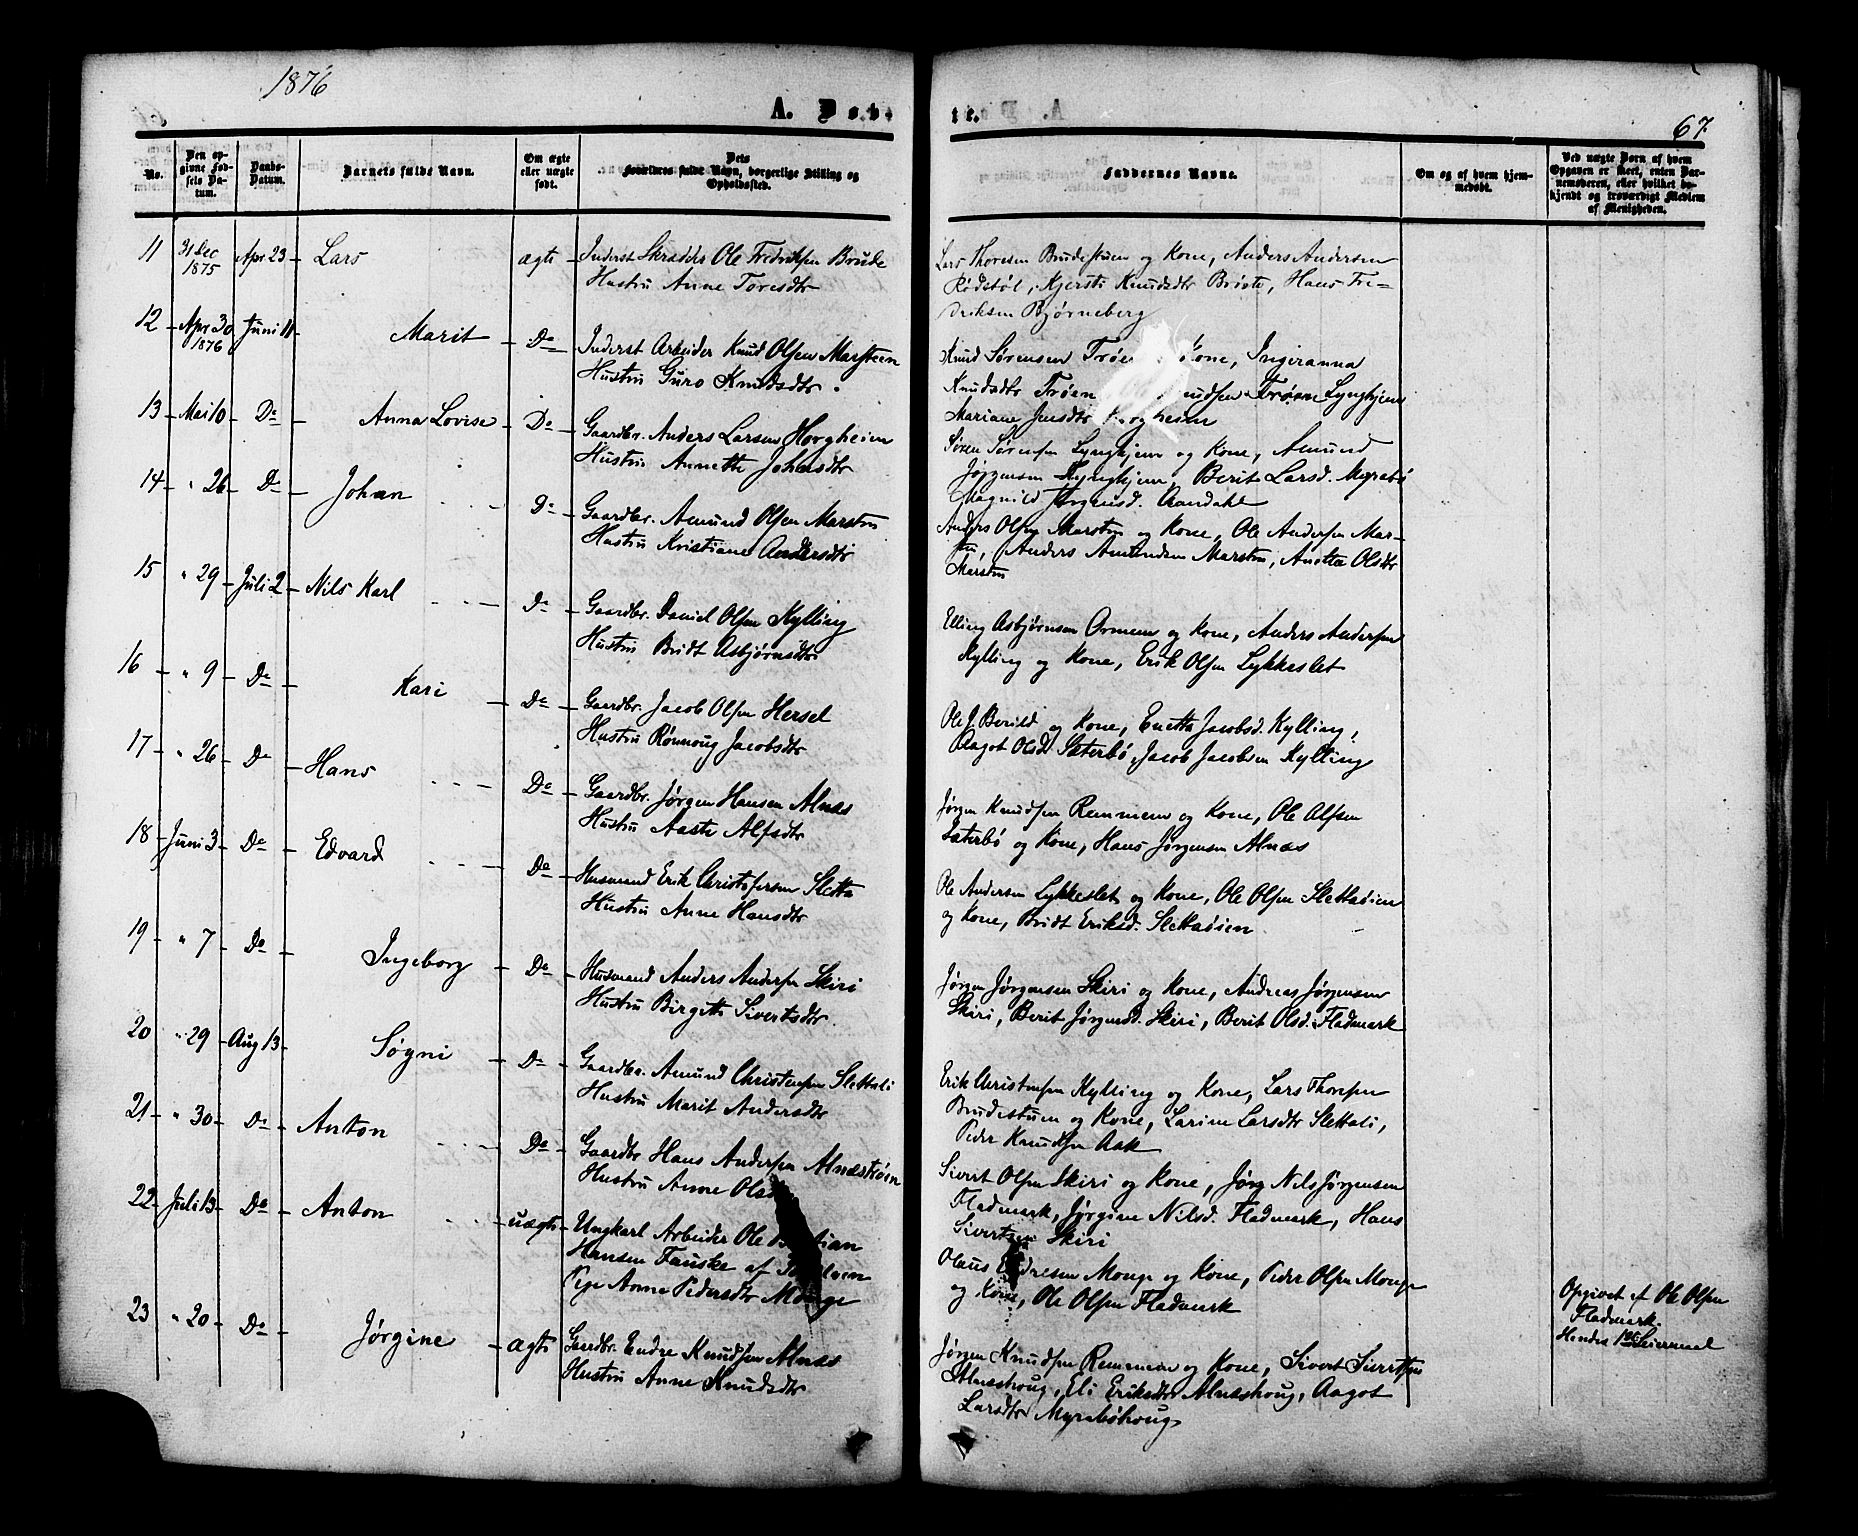 1876
A. Døbte.
67.
No.
Den opgivne Fødsels Datum.
Daabs-Datum.
Barnets fulde Navn.
Om ægte eller uægte født.
Dets Forældres fulde Navn, borgerlige Stilling og Opholdssted.
Faddernes Navne.
Om og af hvem hjemmedøbt.
Ved uægte Børn af hvem Opgaven er skeet, enten Barnemoderen, eller hvilket bekjendt og troværdigt Medlem af Menigheden.
11 31 Dec 1875 Apr 23 Lars ægte Inderst Skrædder Ole Fredriksen Brude
Hustru Anne Toresdtr
Lars Thoresen Brudestuen og Kone, Anders Andersen
Rødstøl, Kjersti Knudsdtr Brøste, Hans Fre-
driksen Bjørneberg
12 Apr 30 1876 Juni 11 Marit Do Inderst Arbeider Knud Olsen Marsteen
Hustru Guro Knudsdtr.
Knud Sørensen Kone, Ingeranna
Knudsdtr Trøen Trøen Lynghjem
Mariane Jensdtr Horgheim
13 Mai 10 Do Anna Lovise Do Gaardbr. Anders Larsen Horgheim
Hustru Annette Johnsdtr
Søren Sørensen Lynghjem og Kone, Amund
Jørgensen Lynghjem, Berit Larsd. Myrabø
Magnild Jørgensd. Aandahl
14 " 26 Do Johan Do Gaardbr. Amund Olsen Marsten
Hustru Kristiane Andersdtr
Anders Olsen Marsten og Kone, Ole Andersen Mar-
sten, Anders Amundsen Marsten, Anetta Olsdtr
Marsten
15 " 29 Juli 2 Nils Karl Do Gaardbr. Daniel Olsen Kylling
Hustru Bridt Asbjørnsdtr
Elling Asbjørnsen Ormem og Kone, Anders Andersen
Kylling og Kone, Erik Olsen Lykkeslet
16 " 9 Do Kari Do Gaardbr. Jacob Olsen Hersel
Hustru Rønnoug Jacobsdtr
Ole J. Berild og Kone, Enetta Jacobsd. Kylling,
Aagot Olsd. Sæterbø, Jacob Jacobsen Kylling
17 " 26 Do Hans Do Gaardbr. Jørgen Hansen Alnæs
Hustru Aaste Alfsdtr
Jørgen Knudsen Remmem og Kone, Ole Alfsen
Sæterbø og Kone, Hans Jørgensen Alnæs
18 Juni 3 Do Edvard Do Husmand Erik Christofersen Sletta
Hustru Anne Hansdtr
Ole Andersen Lykkeslet og Kone, Ole Olsen Slettaøien
og Kone, Bridt Eriksd. Slettaøien
19 " 7 Do Ingeborg Do Husmand Anders Andersen Skiri
Hustru Birgitte Sivertsdtr.
Jørgen Jørgensen Skiri og Kone, Andreas Jørgensen
Skiri, Berit Jørgensd. Skiri, Berit Olsd. Fladmark
20 " 29 Aug 13 Søgni Do Gaardbr. Amund Christensen Slettali
Hustru Marit Andersdtr
Erik Christensen Kylling og Kone, Lars Thoresen
Brudestuen og Kone, Larine Larsdtr Slettali,
Peder Knudsen Aak
21 " 30 Do Anton Do Gaardbr Hans Andersen Alnæstrøen
Hustru Anne
Sivert Olsen Skiri og Kone, Jørg Nils Jørgensen
Fladmark, Jørgine Nilsd. Fladmark, Hans
Sivertsen Skiri
22 Juli 13 Do Anton uægte Ungkarl Arbeider Ole
Hansen Fauske af
Pige Anne Pedersdtr Monge
Olaus Endresen Monge og Kone, Peder Olsen Monge
og Kone, Ole Olsen Fladmark
Opgivet af Ole Olsen
Fladmark.
Hendes 1ste Leiermaal
23 " 20 Do Jørgine ægte Gaardbr. Endre Knudsen Alnæs
Hustru Anne Knudsdtr
Jørgen Knudsen Remmem og Kone, Sivert Sivertsen
Alnæshoug, Eli Eriksdtr Alnæshoug, Aagot
Larsdtr Myrabøhoug